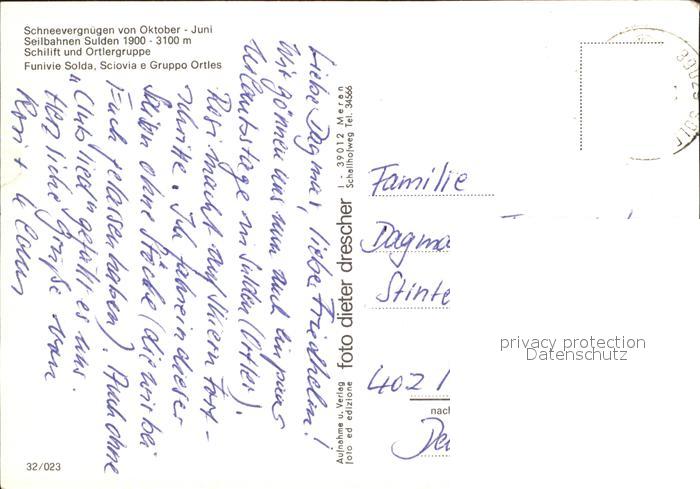 Schneevergnügen von Oktober - Juni
Seilbahnen Sulden 1900 - 3100 m
Schilift und Ortlergruppe
Funivie Solda, Sciovia e Gruppo Ortles
Liebe Dagmar, lieber Friedhelm!
Wir gönnen uns nun auch ein paar
Urlaubstage in Sulden (Ortler).
Rosi macht auf Skiern Fort-
schritte. Ich fahre in dieser
Saison ohne Stöcke (die wir bei
Euch gelassen haben). Auch ohne
"Club lied" gefällt es uns.
Herzliche Grüße von
Rosi + Claus
32/023
Aufnahme u. Verlag
foto ed edizione
foto dieter drescher
I - 39012 Meran
Schallhofweg Tel. 34566
Familie
Dagma
Stinte
402 1
nach
De
privacy protection
Datenschutz